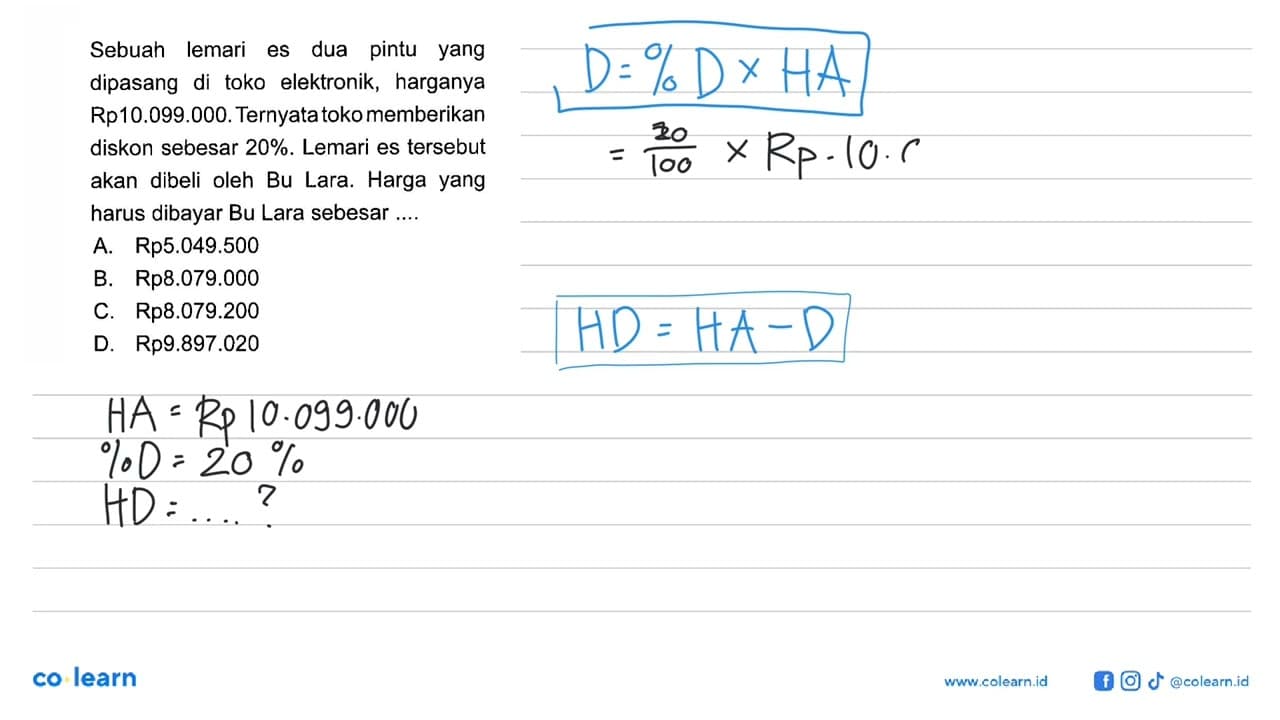 Sebuah lemari es dua pintu yang
dipasang di toko elektronik, harganya
Rp10.099.000. Ternyata toko memberikan
diskon sebesar 20%. Lemari es tersebut
akan dibeli oleh Bu Lara. Harga yang
harus dibayar Bu Lara sebesar ....
A. Rp5.049.500
B. Rp8.079.000
C. Rp8.079.200
D. Rp9.897.020
HA = Rp 10.099.000
%D = 20 %
HD = .... ?
D = % D × HA
= 20/100 × Rp. 10.
HD = HA - D
co learn
www.colearn.id
@colearn.id